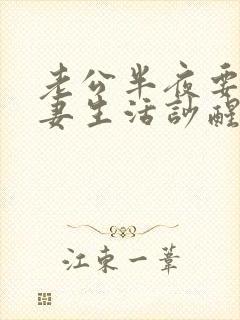 老公半夜要
妻生活訬醒
江東一葦